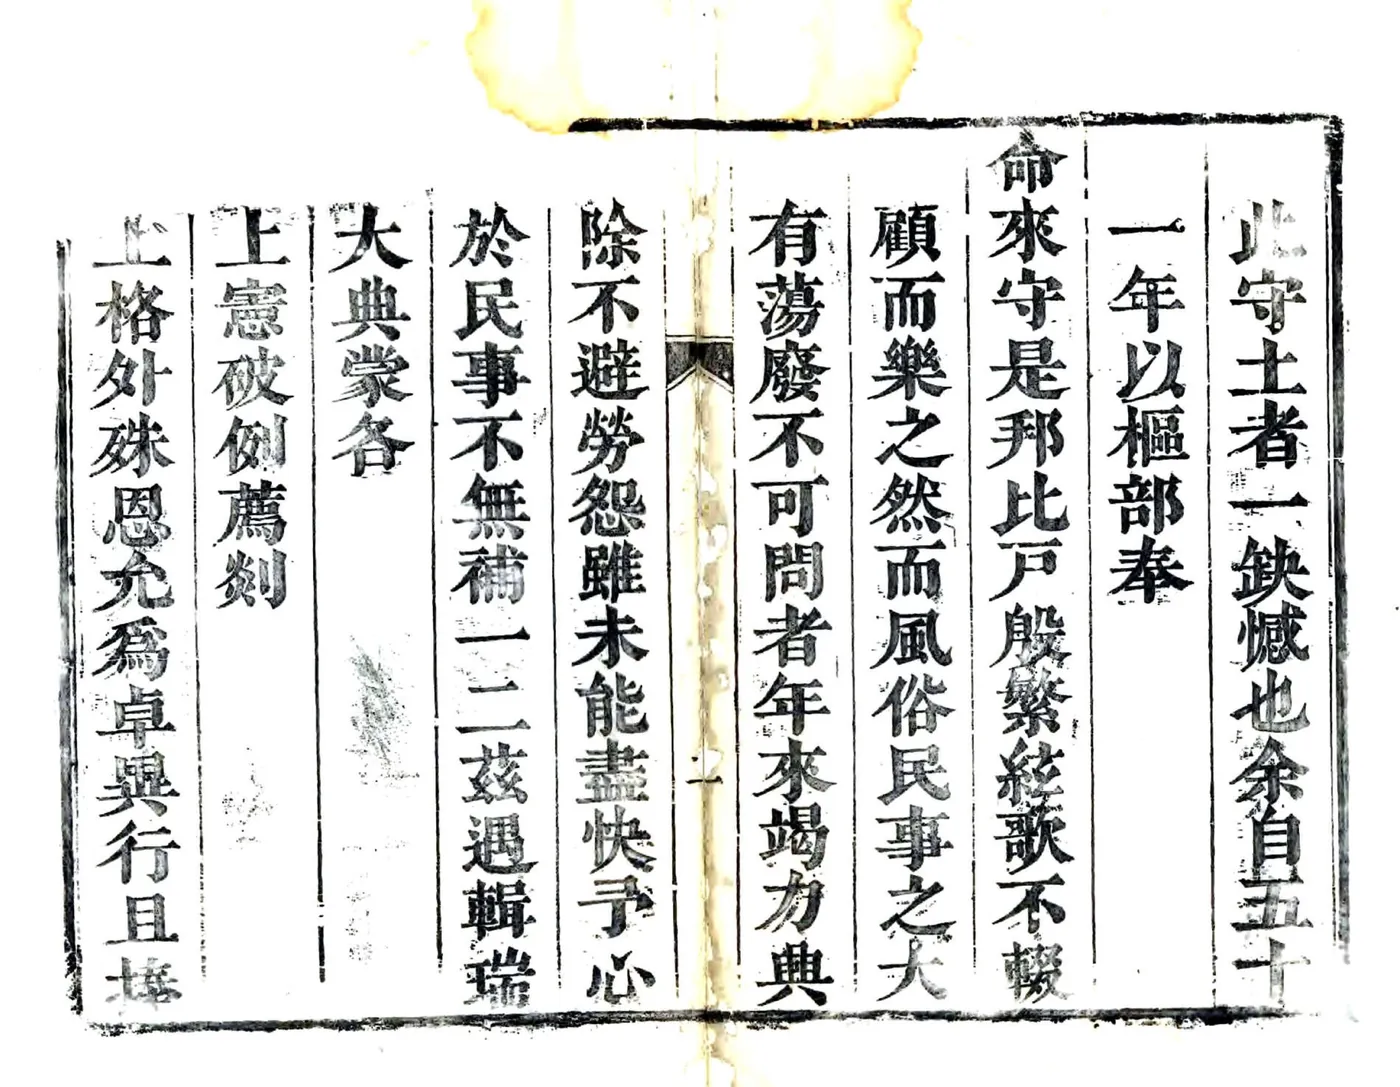 此守土者一缺憾也余自五十
一年以樞部奉
命來守是邦比戸殷繁絃歌不輟
顧而樂之然而風俗民事之大
有蕩廢不可問者年來竭力典
除不避勞怨雖未能盡快予心
於民事不無補一二茲遇輯瑞
大典蒙各
上憲破例薦剡
上格外殊恩允爲卓異行且
二